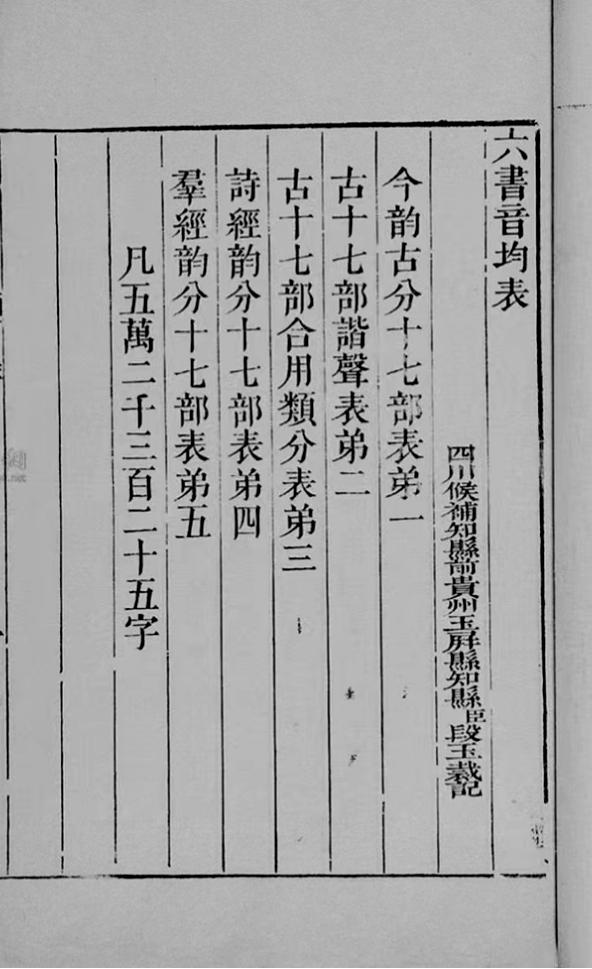 六書音均表
四川候補知縣前貴州玉屛縣知縣臣段玉裁記
今韵古分十七部表弟一
古十七部諧聲表弟二
古十七部合用類分表弟三
詩經韵分十七部表弟四
羣經韵分十七部表弟五
凡五萬二千三百二十五字